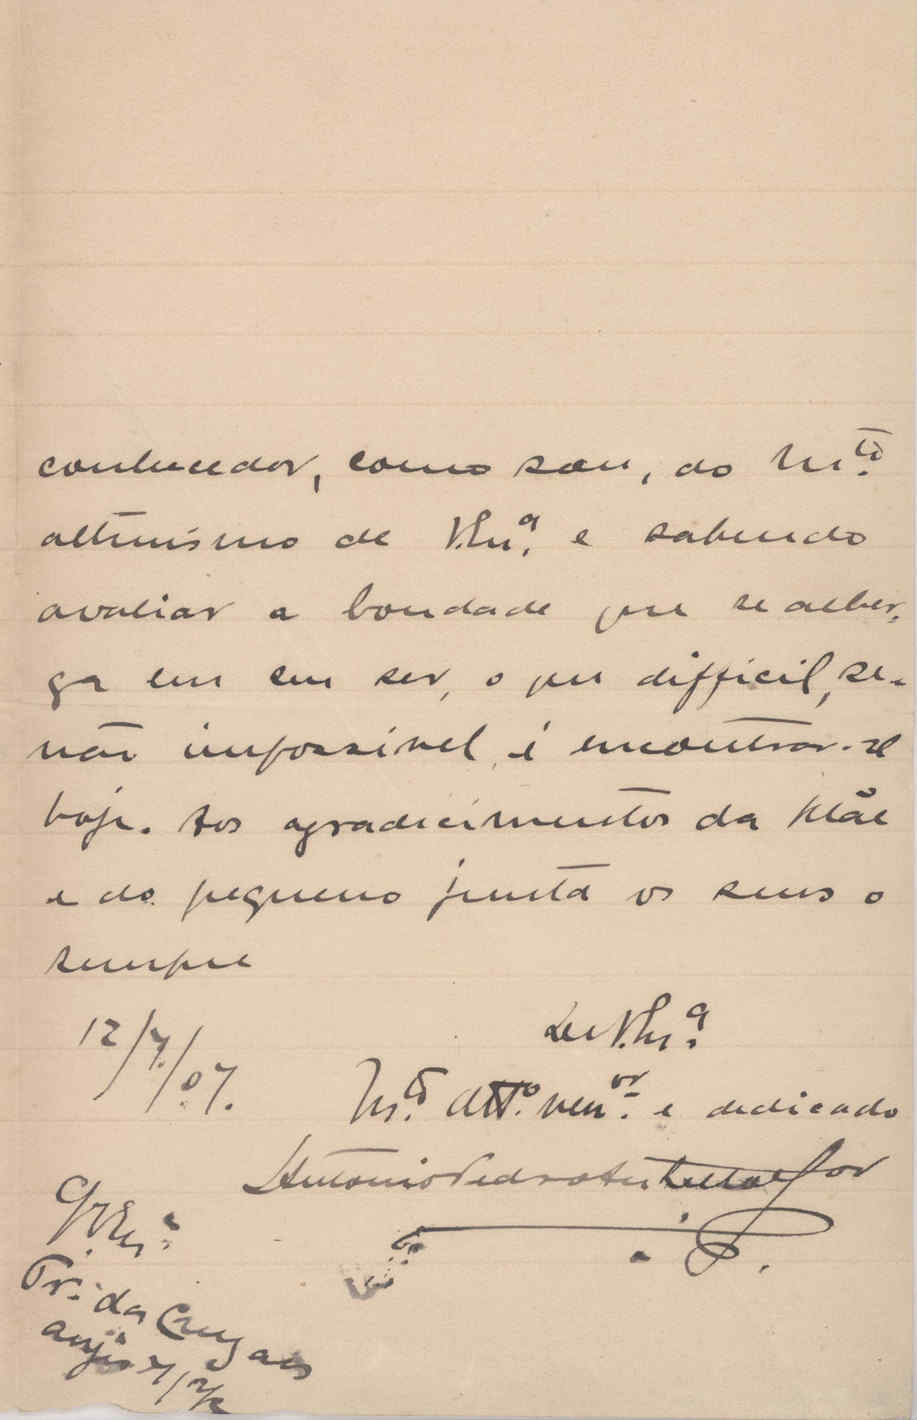 conhecedor, como sou, do m.to
altruismo de V. Ex.ª e sabendo
avaliar a bondade que se alber-
ga em seu ser, o que difficil, se-
não impossivel, é encontrar-se
hoje. Aos agradecimentos da Mãe
e do pequeno junta os seus o
sempre
De V. Ex.ª
12/7/07.
M.to att.o ven.or e dedicado
Antonio Pedro
Tr. da Cruz aos
Anjos